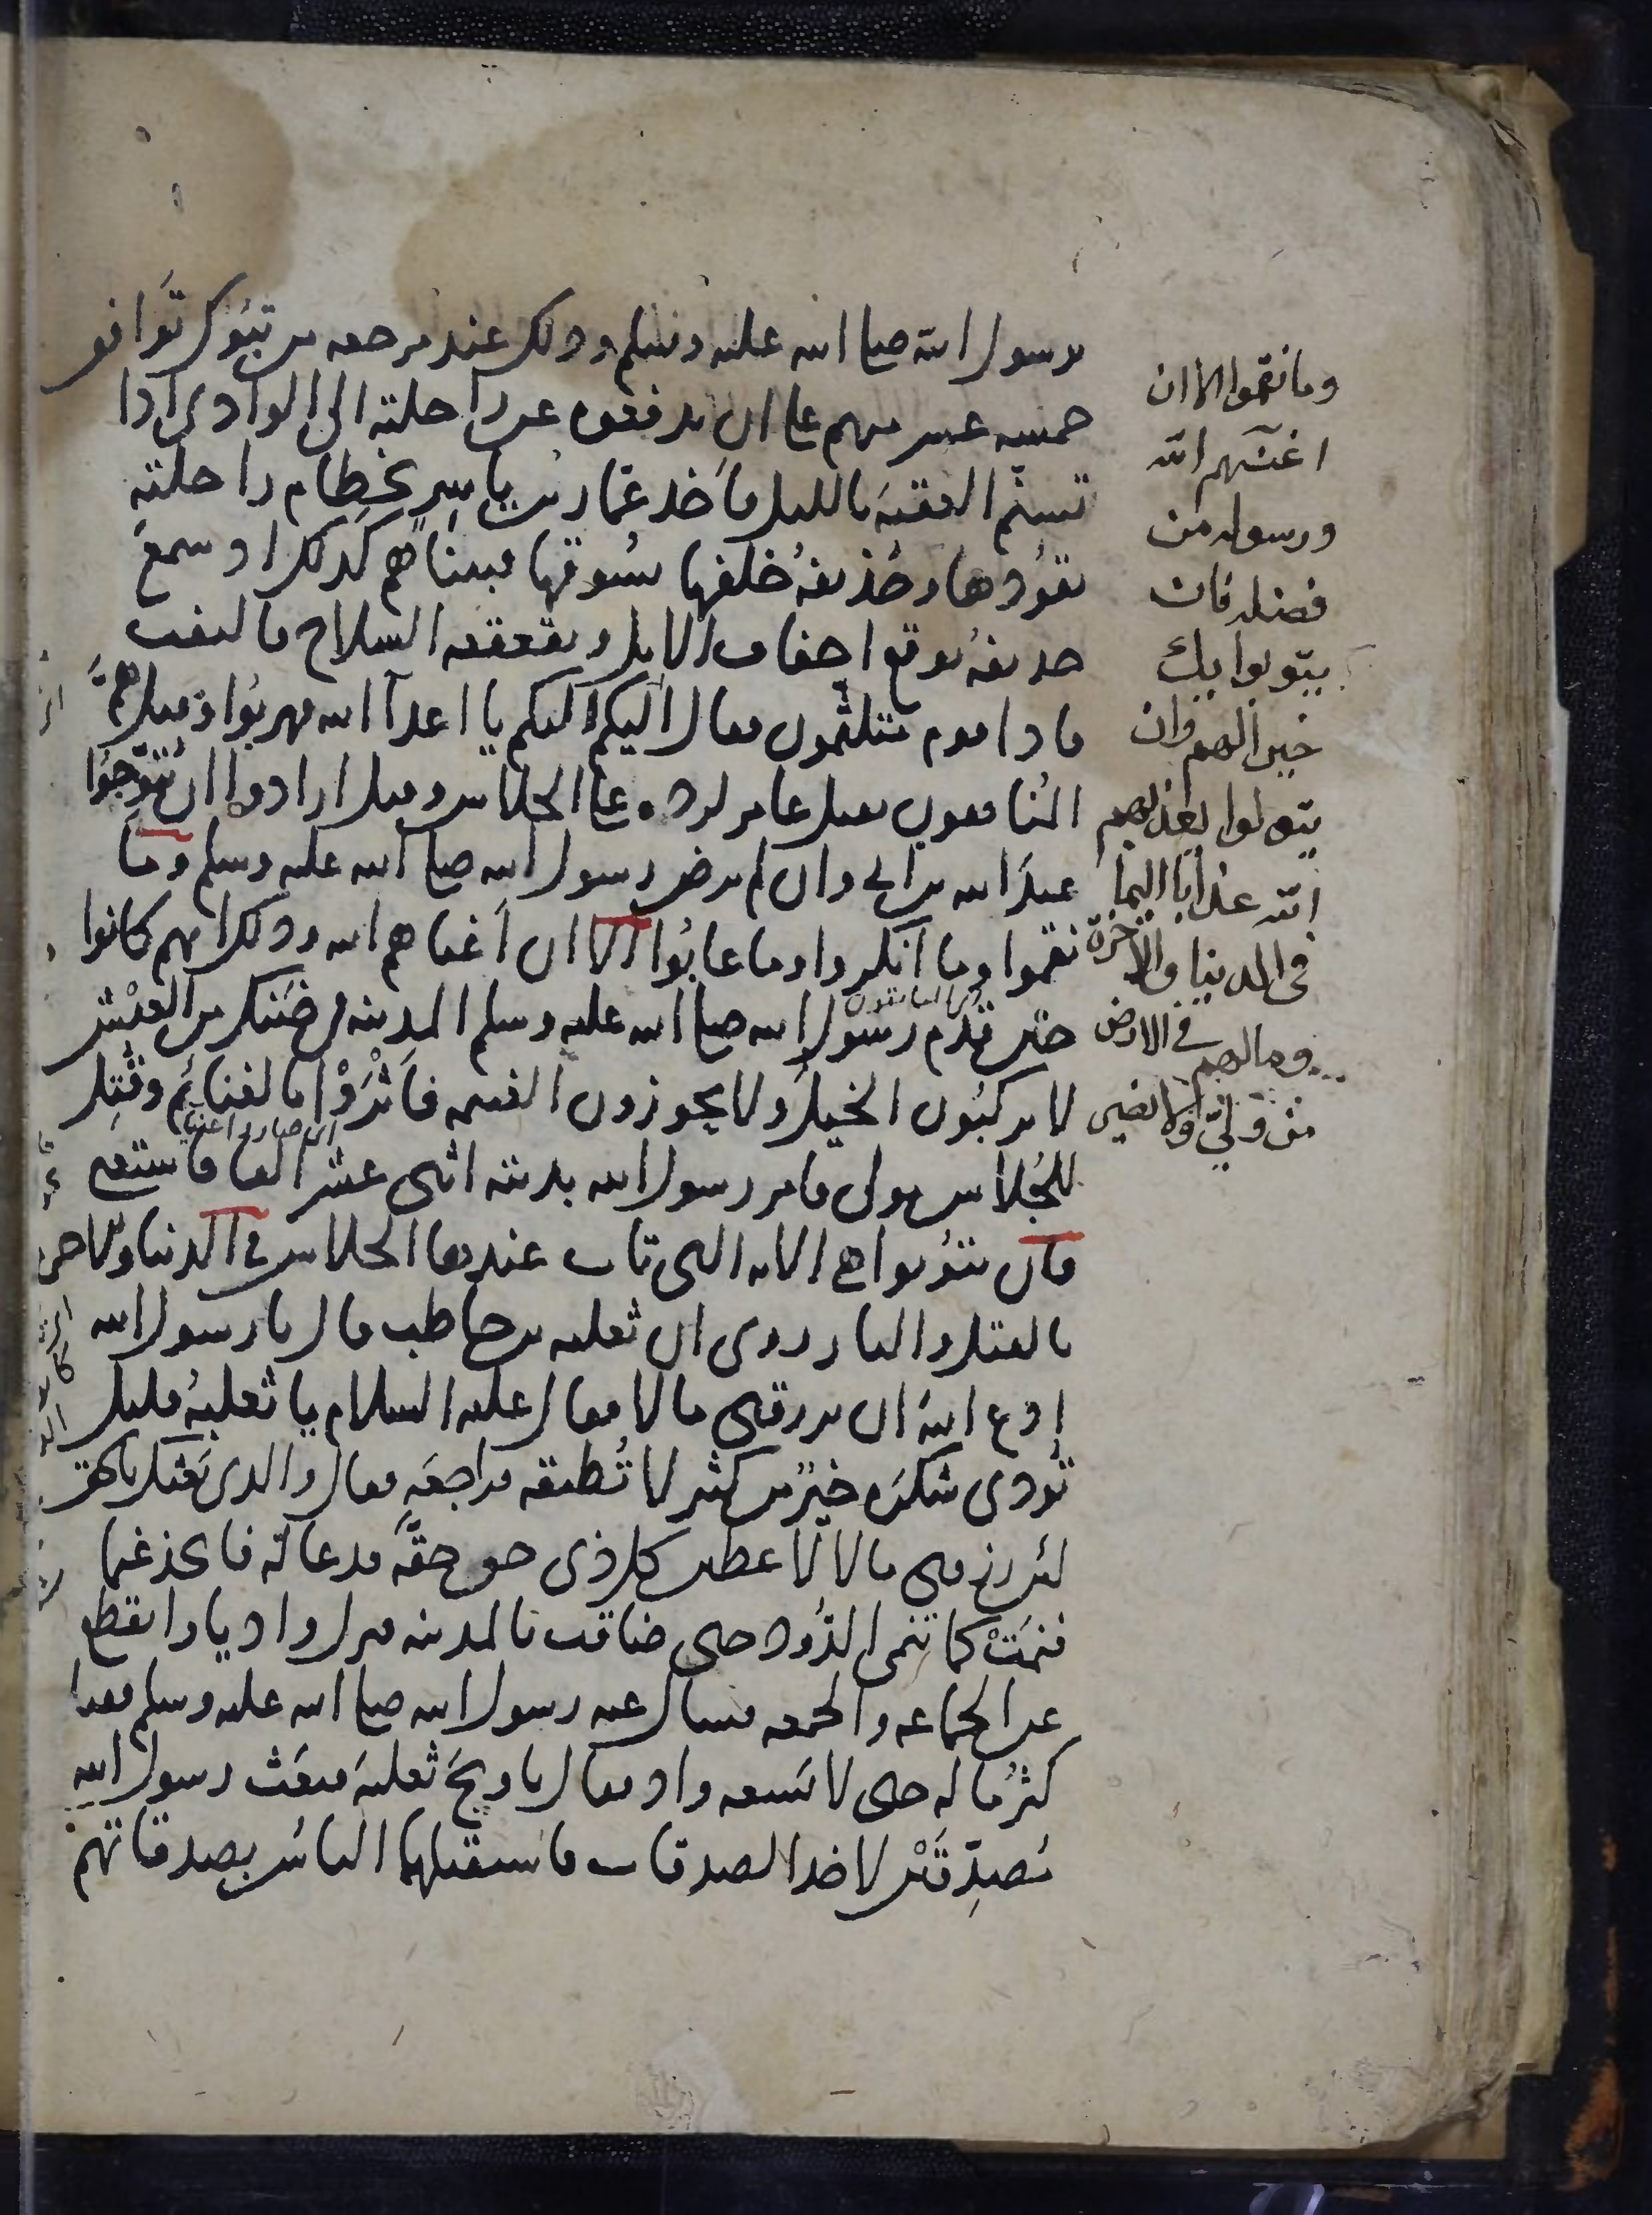 برسول الله صلى الله عليه وسلم وذلك عند مرجعه من تبوك تواثق
خمسة عشر منهم على ان يدفعوه عن راحلته الى الوادى اذا
تسنم العقبة بالليل فأخذ عمار بن ياسر بخطام راحلته
يقودها وحذيفة خلفها يسوقها فبينا هم كذلك اذ سمع
حذيفة بوقع اخفاف الابل وبقعقعة السلاح فالتفت
فاذا قوم متلثمون فقال اليكم اليكم يا اعدآ الله فهربوا وقيل همّ
المنافقون بقتل عامر لرده على الجلاس وقيل ارادوا ان يتوجوا
عبد الله بن ابي وان لم يرض رسول الله صلى الله عليه وسلم وما
نقموا وما انكروا وما عابوا الا ان اغناهم الله وذلك انهم كانوا
حين قدم رسول الله صلى الله عليه وسلم المدينة في ضنك من العيش
لا يركبون الخيل ولا يحوزون الغنيمة فأثروا بالغنائم وقتل
اى صاروا اغنيا
للجلاس مولى فامر رسول الله بديته اثنى عشر الفا فاستغنى
فان يتوبوا هي الاية التى تاب عندها الجلاس في الدنيا والاخرة
بالقتل والنار روى ان ثعلبة بن حاطب قال يا رسول الله
ادع الله ان يرزقنى مالا فقال عليه السلام يا ثعلبة قليل
تؤدى شكره خير من كثير لا تطيقه فراجعه فقال والذى بعثك بالحق
لئن رزقنى مالا لاعطين كل ذى حق حقه فدعا له فاتخذ غنما
فنمت كما تنمى الدود حتى ضاقت بالمدينة فنزل واديا وانقطع
عن الجماعة والجمعة فسال عنه رسول الله صلى الله عليه وسلم فقيل
كثر ماله حتى لا يسعه واد فقال يا ويح ثعلبة فبعث رسول الله
مصدقين لاخذ الصدقات فاستقبلهما الناس بصدقاتهم
وما نقموا الا ان
اغنيهم الله
ورسوله من
فضله فان
يتوبوا يك
خيرا لهم وان
يتولوا يعذبهم
الله عذابا اليما
فى الدنيا والاخرة
وما لهم في الارض
من ولي ولا نصير